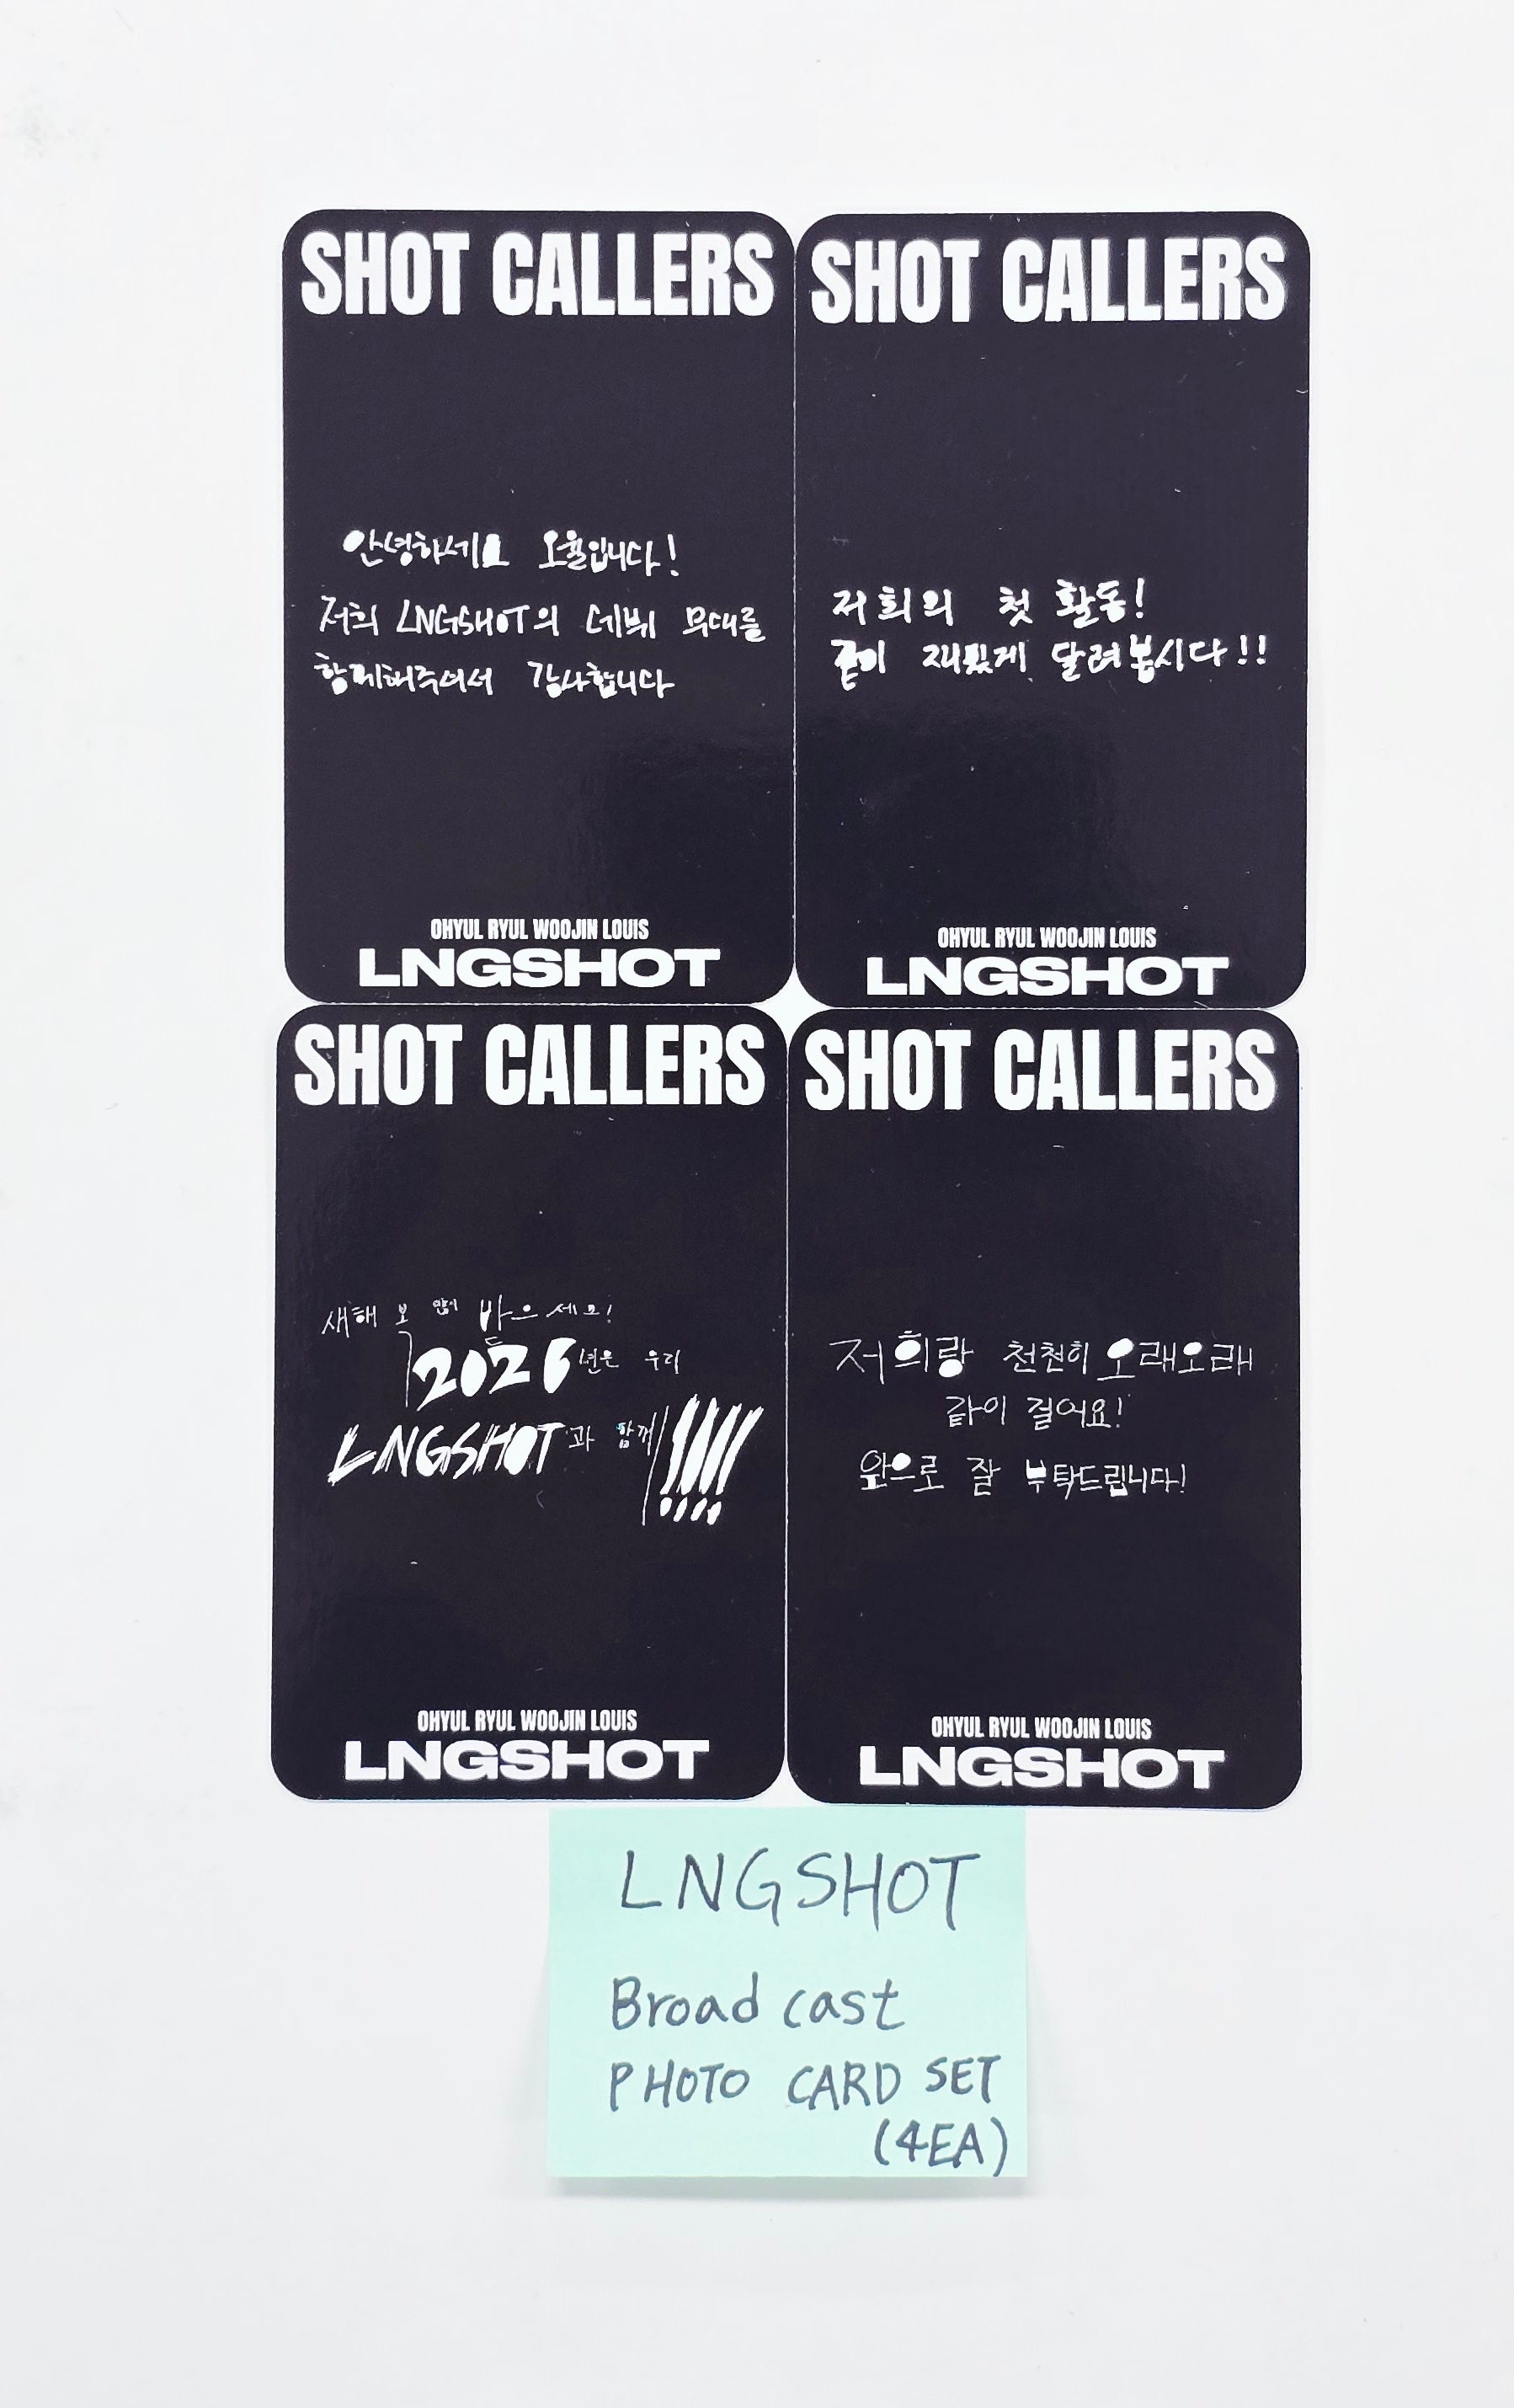 SHOT CALLERS
안녕하세요 오율입니다!
저희 LNGSHOT의 데뷔 무대를
함께해주셔서 감사합니다
OHYUL RYUL WOOJIN LOUIS
LNGSHOT
SHOT CALLERS
저희의 첫 활동!
같이 재밌게 달려봅시다!!
OHYUL RYUL WOOJIN LOUIS
LNGSHOT
SHOT CALLERS
새해 복 많이 받으세요!
2026년은 우리
LNGSHOT과 함께!!!!
OHYUL RYUL WOOJIN LOUIS
LNGSHOT
SHOT CALLERS
저희랑 천천히 오래오래
같이 걸어요!
앞으로 잘 부탁드립니다!
OHYUL RYUL WOOJIN LOUIS
LNGSHOT
LNGSHOT
Broadcast
PHOTO CARD SET
(4EA)